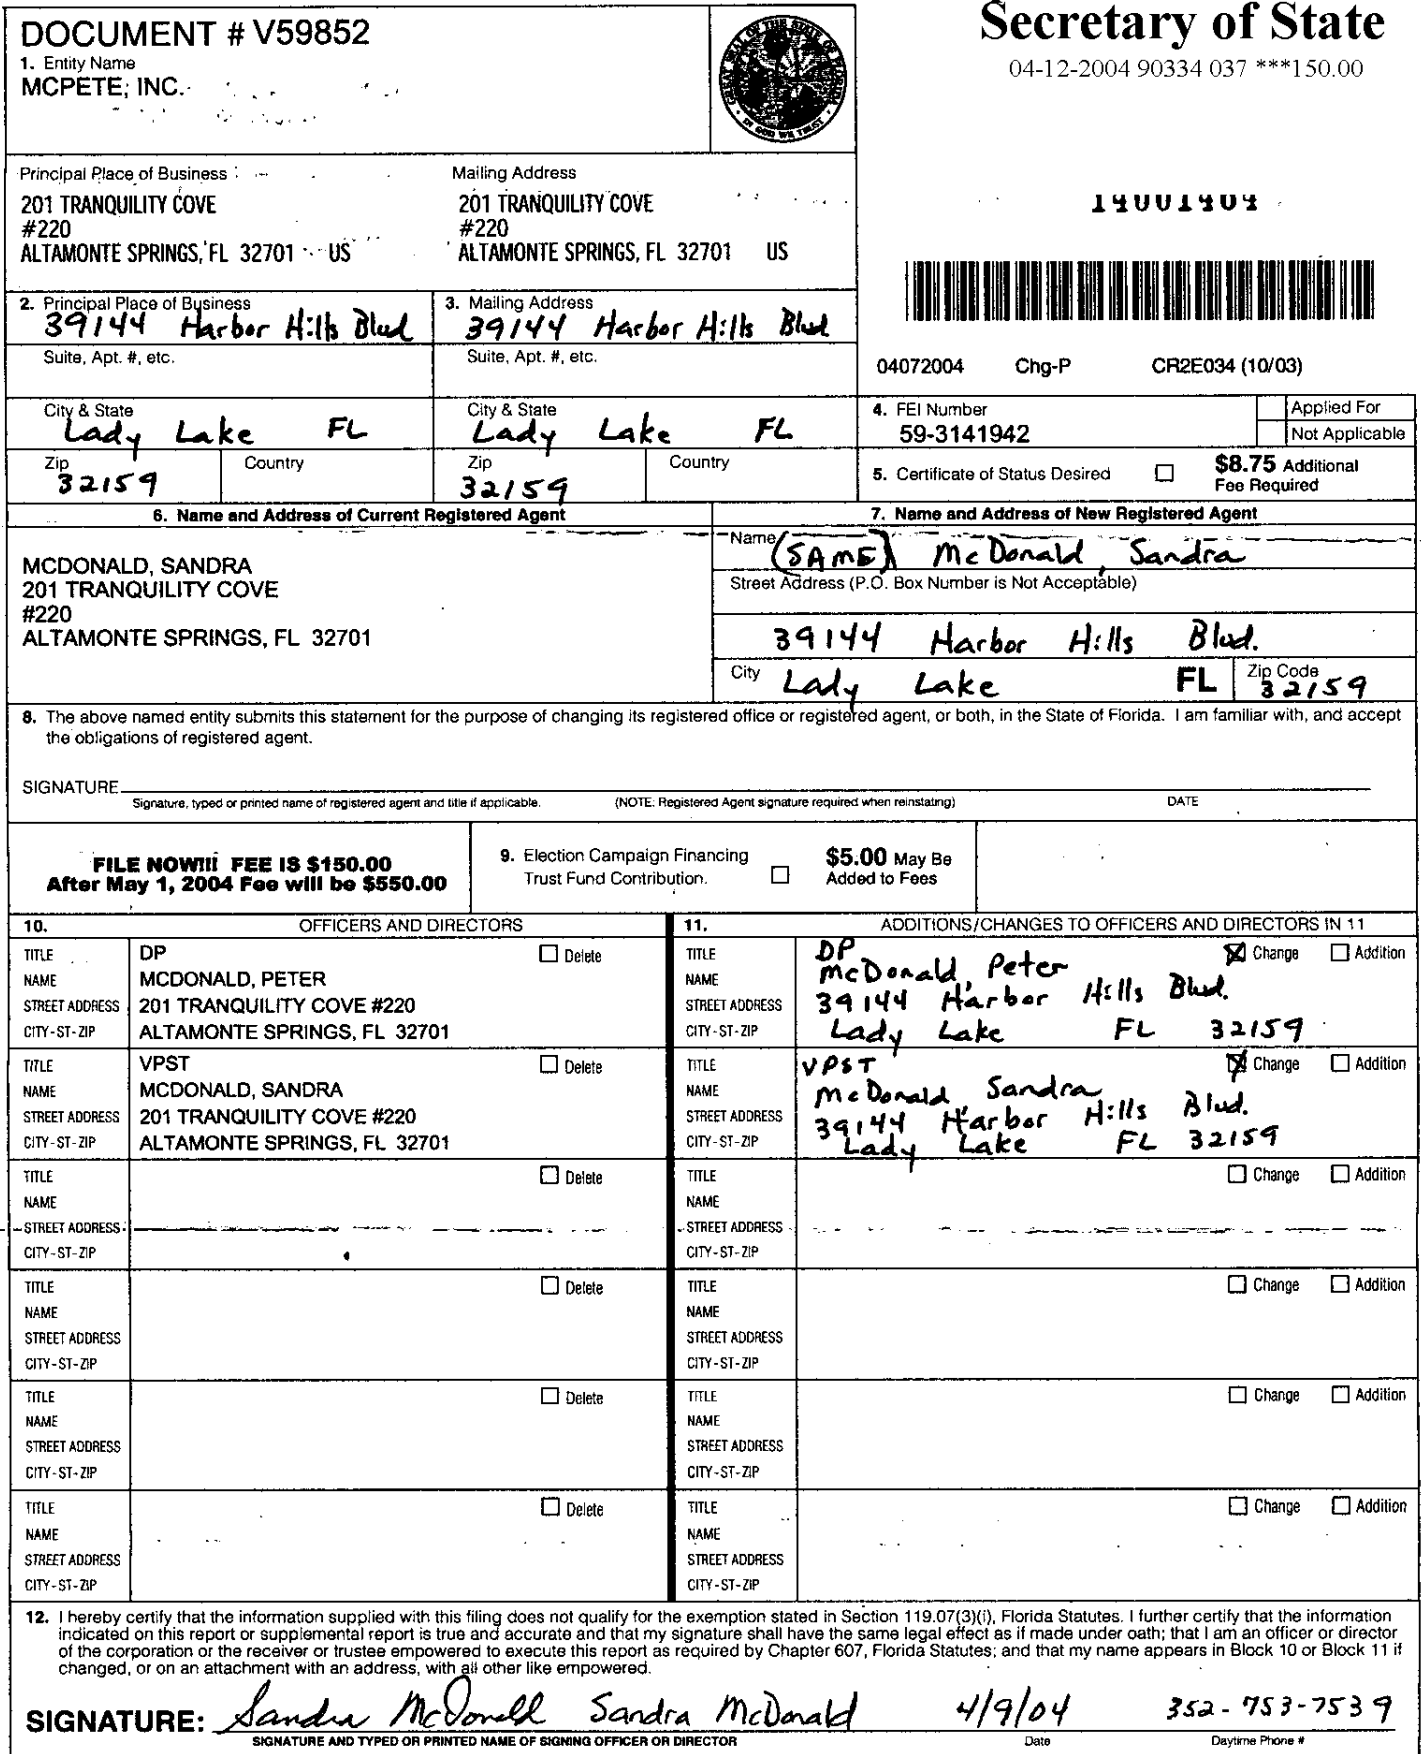 DOCUMENT # V59852
1. Entity Name
MCPETE, INC.
Secretary of State
04-12-2004 90334 037 ***150.00
Principal Place of Business
201 TRANQUILITY COVE
#220
ALTAMONTE SPRINGS, FL 32701 US
Mailing Address
201 TRANQUILITY COVE
#220
ALTAMONTE SPRINGS, FL 32701 US
2. Principal Place of Business
39144 Harbor Hills Blvd
Suite, Apt. #, etc.
City & State
Lady Lake FL
Zip
32159
Country
3. Mailing Address
39144 Harbor Hills Blvd
Suite, Apt. #, etc.
City & State
Lady Lake FL
Zip
32159
Country
04072004 Chg-P CR2E034 (10/03)
4. FEI Number
59-3141942
Applied For
Not Applicable
5. Certificate of Status Desired
$8.75 Additional
Fee Required
6. Name and Address of Current Registered Agent
MCDONALD, SANDRA
201 TRANQUILITY COVE
#220
ALTAMONTE SPRINGS, FL 32701
7. Name and Address of New Registered Agent
Name (SAME) McDonald, Sandra
Street Address (P.O. Box Number is Not Acceptable)
39144 Harbor Hills Blvd.
City Lady Lake FL Zip Code 32159
8. The above named entity submits this statement for the purpose of changing its registered office or registered agent, or both, in the State of Florida. I am familiar with, and accept
the obligations of registered agent.
SIGNATURE
Signature, typed or printed name of registered agent and title if applicable. (NOTE: Registered Agent signature required when reinstating) DATE
FILE NOW!!! FEE IS $150.00
After May 1, 2004 Fee will be $550.00
9. Election Campaign Financing
Trust Fund Contribution.
$5.00 May Be
Added to Fees
10. OFFICERS AND DIRECTORS
11. ADDITIONS/CHANGES TO OFFICERS AND DIRECTORS IN 11
TITLE DP Delete
NAME MCDONALD, PETER
STREET ADDRESS 201 TRANQUILITY COVE #220
CITY-ST-ZIP ALTAMONTE SPRINGS, FL 32701
TITLE DP Change Addition
NAME McDonald, Peter
STREET ADDRESS 39144 Harbor Hills Blvd.
CITY-ST-ZIP Lady Lake FL 32159
TITLE VPST Delete
NAME MCDONALD, SANDRA
STREET ADDRESS 201 TRANQUILITY COVE #220
CITY-ST-ZIP ALTAMONTE SPRINGS, FL 32701
TITLE VPST Change Addition
NAME McDonald, Sandra
STREET ADDRESS 39144 Harbor Hills Blvd.
CITY-ST-ZIP Lady Lake FL 32159
TITLE Delete
NAME
STREET ADDRESS
CITY-ST-ZIP
TITLE Change Addition
NAME
STREET ADDRESS
CITY-ST-ZIP
TITLE Delete
NAME
STREET ADDRESS
CITY-ST-ZIP
TITLE Change Addition
NAME
STREET ADDRESS
CITY-ST-ZIP
TITLE Delete
NAME
STREET ADDRESS
CITY-ST-ZIP
TITLE Change Addition
NAME
STREET ADDRESS
CITY-ST-ZIP
TITLE Delete
NAME
STREET ADDRESS
CITY-ST-ZIP
TITLE Change Addition
NAME
STREET ADDRESS
CITY-ST-ZIP
12. I hereby certify that the information supplied with this filing does not qualify for the exemption stated in Section 119.07(3)(i), Florida Statutes. I further certify that the information
indicated on this report or supplemental report is true and accurate and that my signature shall have the same legal effect as if made under oath; that I am an officer or director
of the corporation or the receiver or trustee empowered to execute this report as required by Chapter 607, Florida Statutes; and that my name appears in Block 10 or Block 11 if
changed, or on an attachment with an address, with all other like empowered.
SIGNATURE: Sandra McDonald Sandra McDonald 4/9/04 352-753-7539
SIGNATURE AND TYPED OR PRINTED NAME OF SIGNING OFFICER OR DIRECTOR Date Daytime Phone #